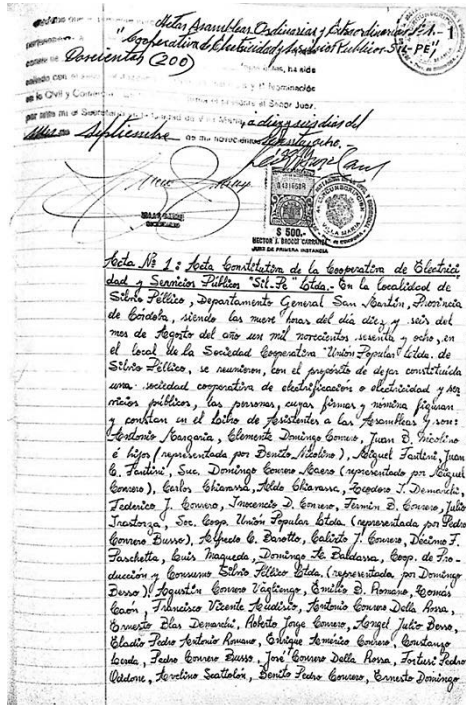 Actas Asambleas Ordinarias y Extraordinarias
"Cooperativa de Electricidad y Servicios Públicos SIL-PE"
1
Doscientas (200)
ha sido
Nominación
en lo Civil y Comercial
el Señor Juez.
a dieciseis días del
mes de Septiembre de mil novecientos sesenta y ocho.
$ 500.-
HECTOR J. BROCCI CARRANZA
JUEZ DE PRIMERA INSTANCIA
Acta Nº 1: Acta Constitutiva de la Cooperativa de Electrici
dad y Servicios Públicos "Sil-Pe" Ltda.- En la localidad de
Silvio Péllico, Departamento General San Martín, Provincia
de Córdoba, siendo las nueve horas del día diez y seis del
mes de Agosto del año un mil novecientos sesenta y ocho, en
el local de la Sociedad Cooperativa "Unión Popular" Ltda. de
Silvio Péllico, se reunieron, con el propósito de dejar constituída
una sociedad cooperativa de electrificación o electricidad y ser
vicios públicos, las personas, cuyas firmas y nómina figuran
y constan en el Libro de Asistentes a las Asambleas y son:
Antonio Margaria, Clemente Domingo Conrero, Juan B. Nicolino
é hijos (representada por Benito Nicolino), Miguel Fantini, Juan
C. Fantini, Suc. Domingo Conrero Maero (representada por Miguel
Conrero), Carlos Chiavassa, Aldo Chiavassa, Teodoro J. Demarchi,
Federico J. Conrero, Inocencio D. Conrero, Fermín B. Conrero, Julio
Irastorza, Soc. Coop. Unión Popular Ltda. (representada por Pedro
Conrero Busso), Alfredo C. Barotto, Calixto J. Conrero, Décimo F.
Paschetta, Luis Maqueda, Domingo A. Baldassa, Coop. de Pro-
ducción y Consumo Silvio Péllico Ltda. (representada por Domingo
Berso), Agustín Conrero Vagliengo, Emilio B. Romano, Tomás
Caón, Francisco Vicente Audisio, Antonio Conrero Della Rossa,
Ernesto Blas Demarchi, Roberto Jorge Conrero, Angel Julio Berso,
Eladio Pedro Antonio Romano, Enrique Américo Conrero, Constanzo
Cerda, Pedro Conrero Busso, José Conrero Della Rossa, Pedro
Oddone, Avelino Scattolón, Benito Pedro Conrero, Ernesto Domingo